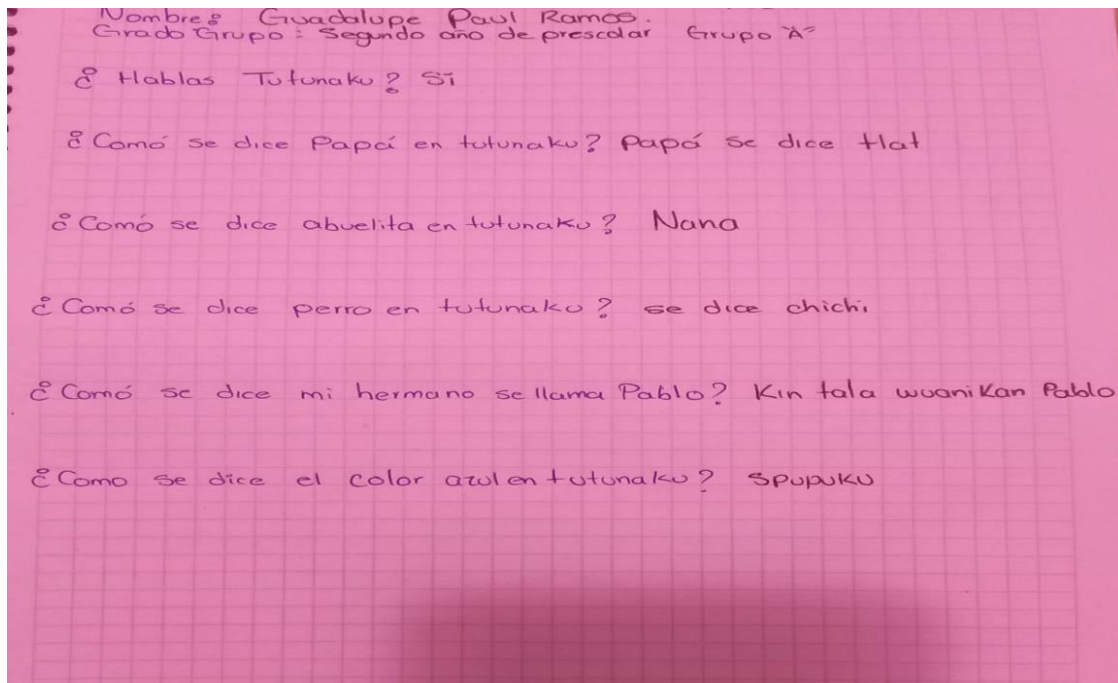 Nombre: Guadalupe Paul Ramos.
Grado Grupo: Segundo año de prescolar Grupo "A"
¿Hablas Tutunaku? Sí
¿Comó se dice Papá en tutunaku? Papá se dice tlat
¿Comó se dice abuelita en tutunaku? Nana
¿Comó se dice perro en tutunaku? se dice chichi
¿Comó se dice mi hermano se llama Pablo? Kin tala wuanikan Pablo
¿Como se dice el color azul en tutunaku? Spupuku